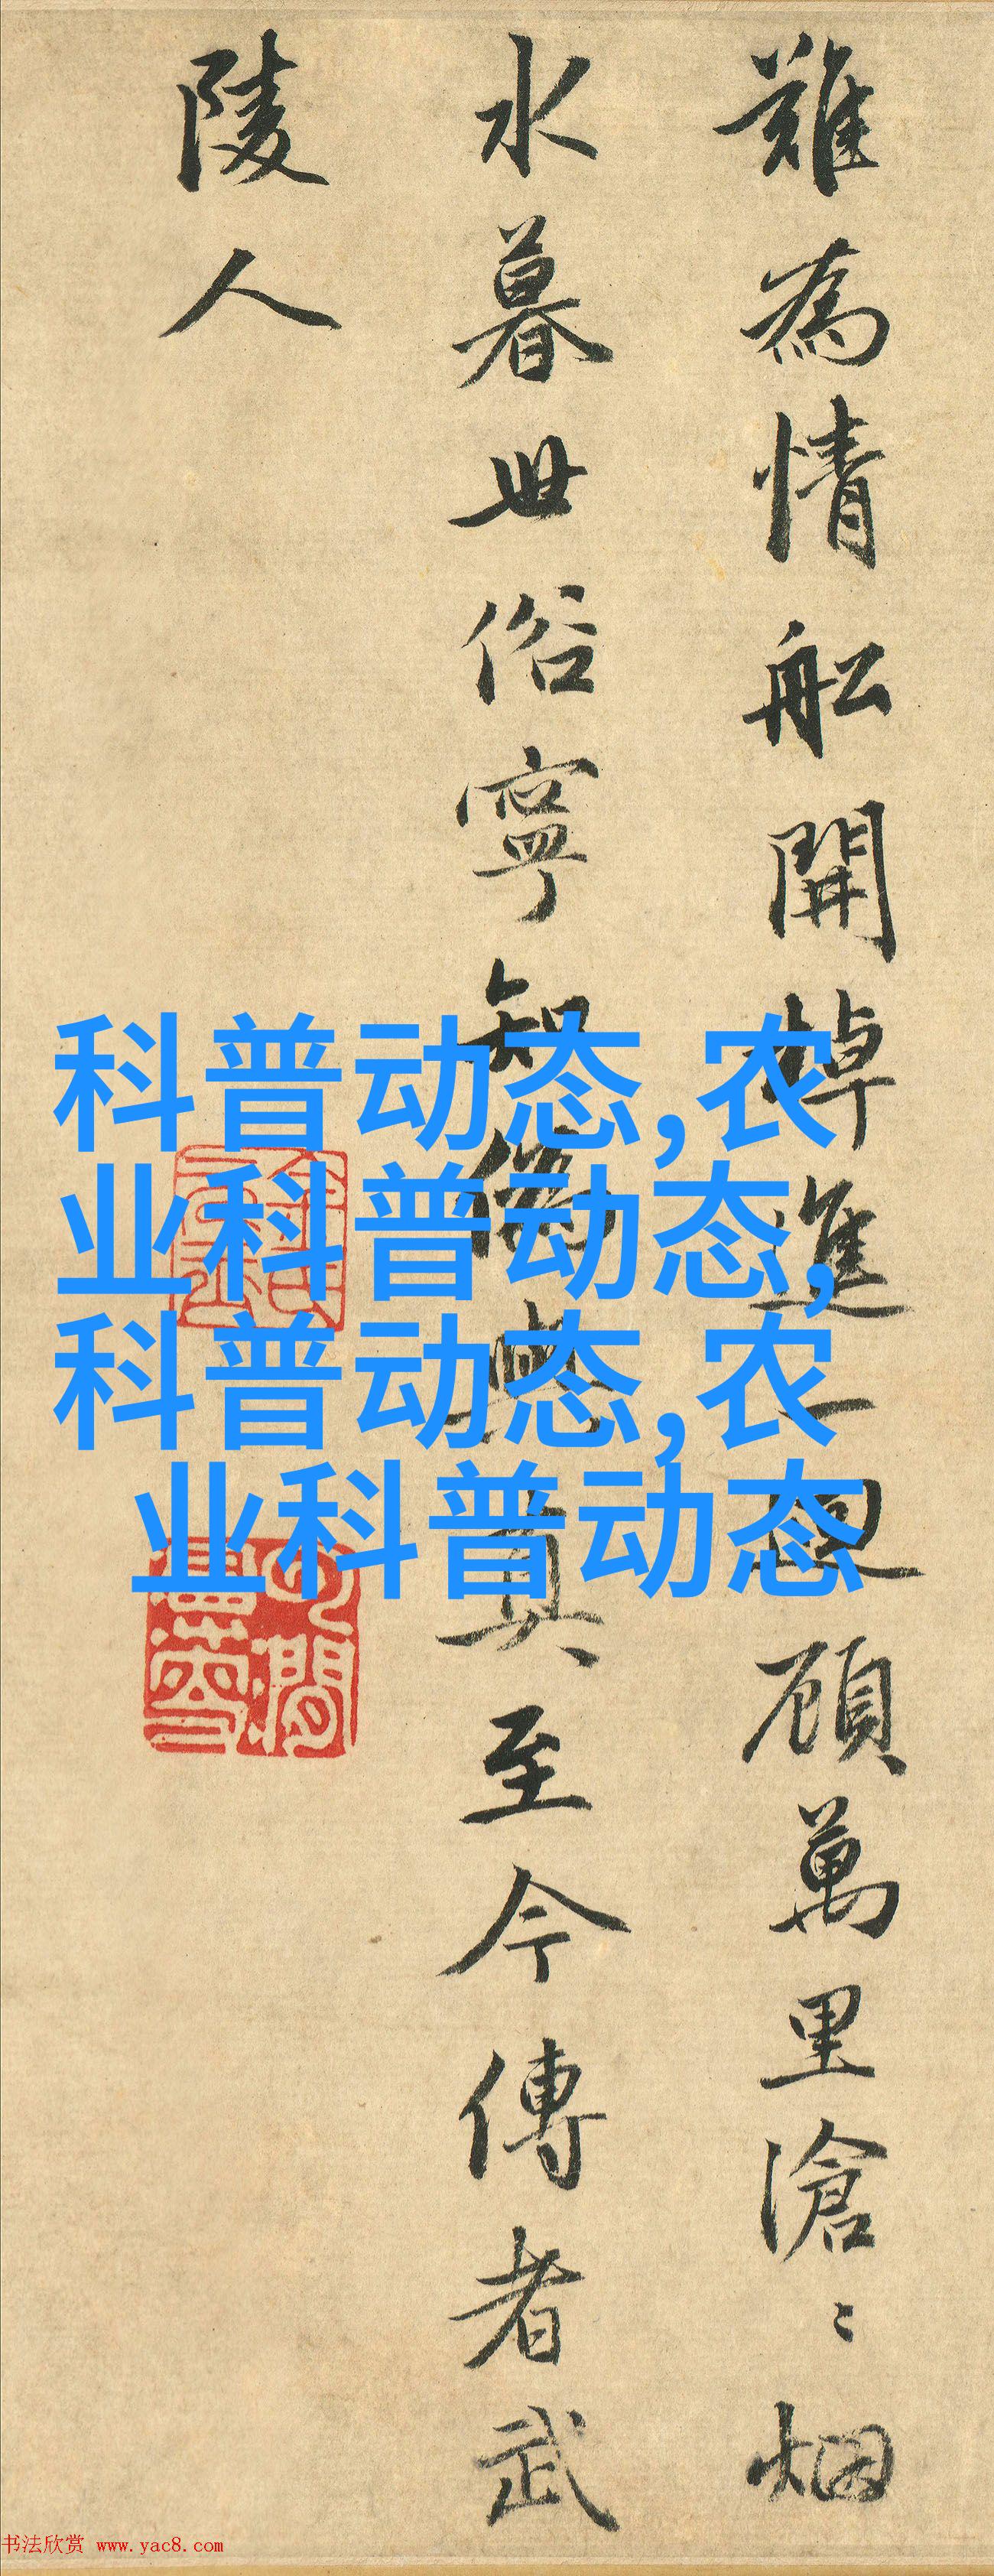 難為情舩開棹進一迴顧萬里滄〻烟
水暮世俗寧知偽與真至今傳者武
陵人
科普动态,农
业科普动态,
科普动态,农
业科普动态
书法欣赏 www.yac8.com